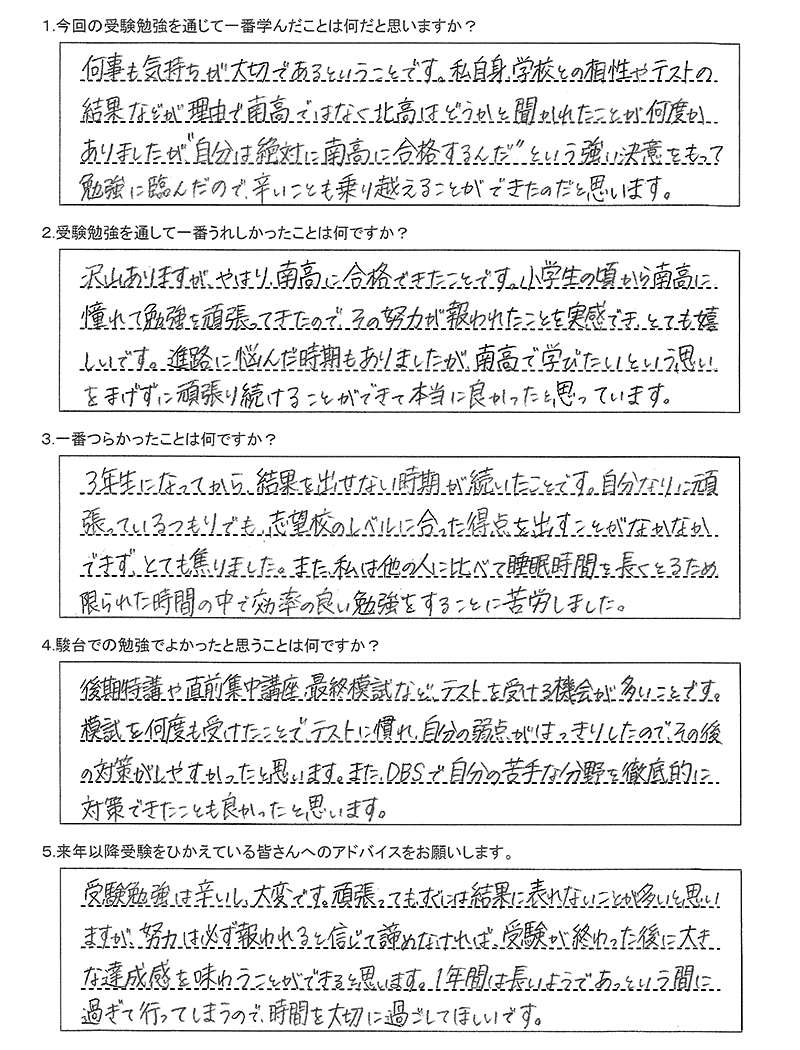 1.今回の受験勉強を通じて一番学んだことは何だと思いますか？
何事も気持ちが大切であるということです。私自身、学校との相性やテストの
結果などが理由で南高ではなく北高はどうかと聞かれたことが何度か
ありましたが“自分は絶対に南高に合格するんだ”という強い決意をもって
勉強に臨んだので、辛いことも乗り越えることができたのだと思います。
2.受験勉強を通して一番うれしかったことは何ですか？
沢山ありますが、やはり、南高に合格できたことです。小学生の頃から南高に
憧れて勉強を頑張ってきたので、その努力が報われたことを実感でき、とても嬉
しいです。進路に悩んだ時期もありましたが、南高で学びたいという思い
をまげずに頑張り続けることができて本当に良かったと思っています。
3.一番つらかったことは何ですか？
3年生になってから、結果を出せない時期が続いたことです。自分なりに頑
張っているつもりでも、志望校のレベルに合った得点を出すことがなかなか
できず、とても焦りました。また、私は他の人に比べて睡眠時間を長くとるため
限られた時間の中で効率の良い勉強をすることに苦労しました。
4.駿台での勉強でよかったと思うことは何ですか？
後期特講や直前集中講座、最終模試など、テストを受ける機会が多いことです。
模試を何度も受けたことでテストに慣れ、自分の弱点がはっきりしたので、その後
の対策がしやすかったと思います。また、DBSで自分の苦手な分野を徹底的に
対策できたことも良かったと思います。
5.来年以降受験をひかえている皆さんへのアドバイスをお願いします。
受験勉強は辛いし、大変です。頑張ってもすぐには結果に表れないことが多いと思い
ますが、努力は必ず報われると信じて諦めなければ、受験が終わった後に大き
な達成感を味わうことができると思います。1年間は長いようであっという間に
過ぎて行ってしまうので、時間を大切に過ごしてほしいです。